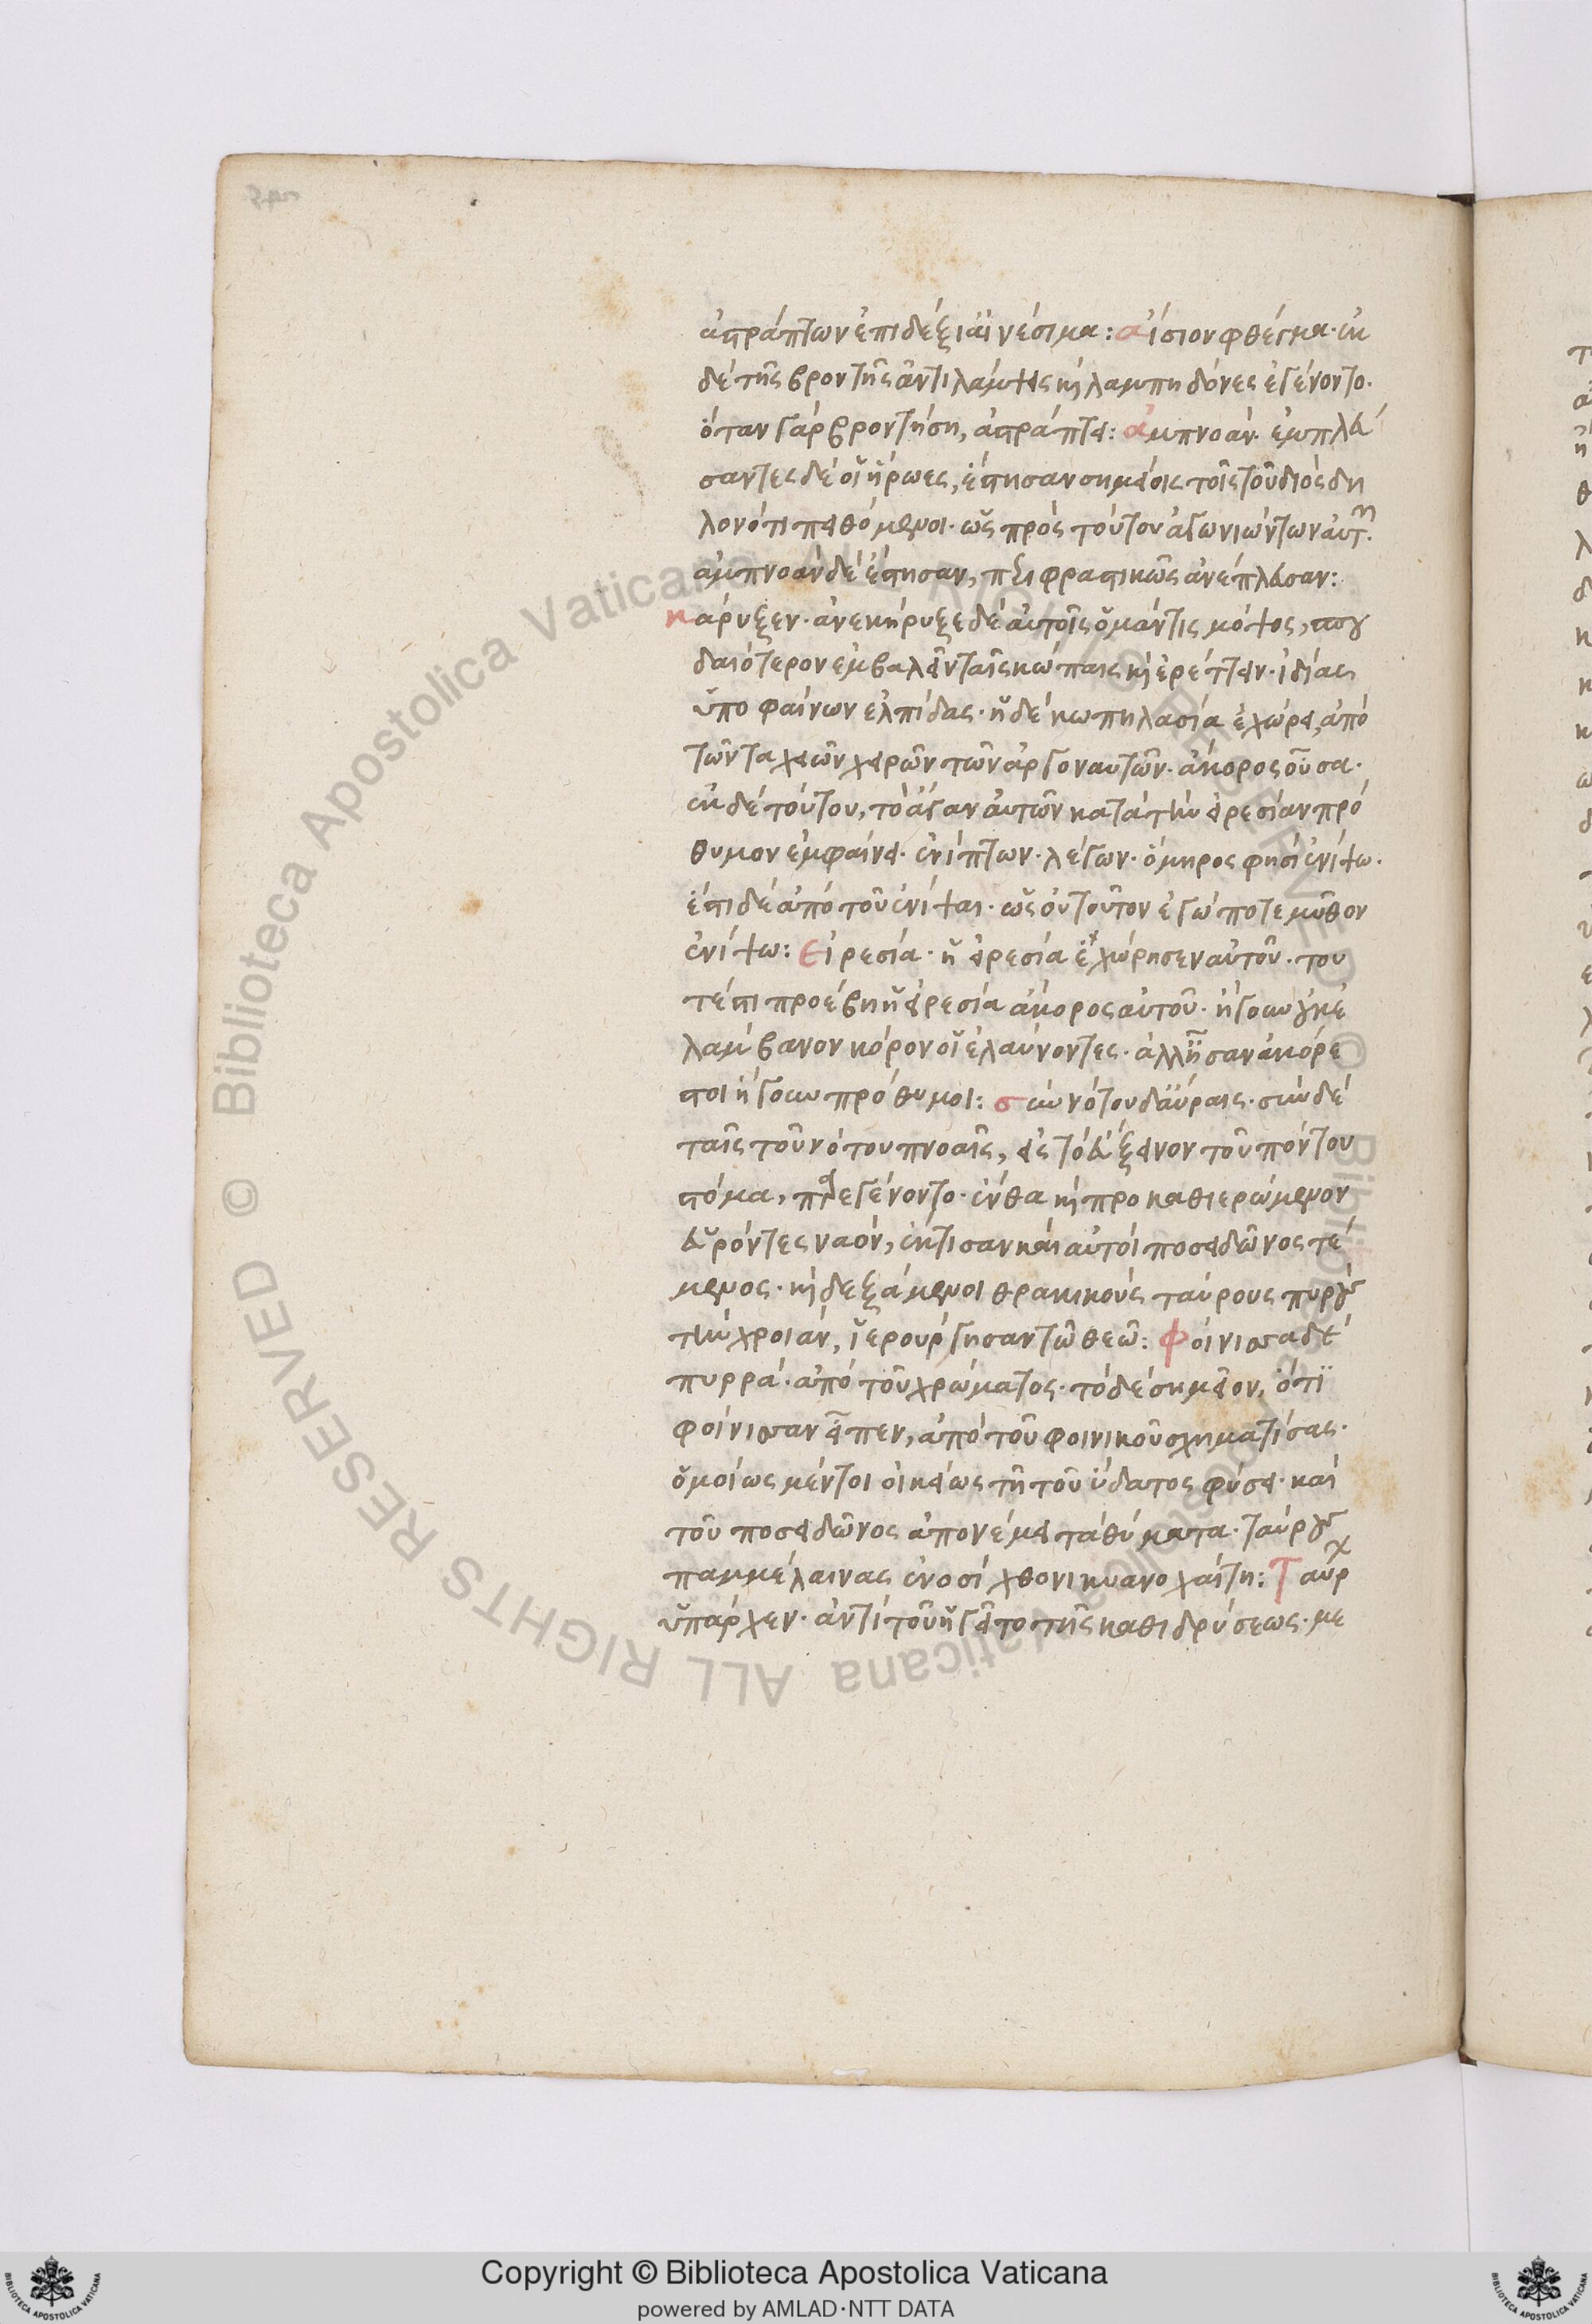 ἀστράπτων ἐπιδέξι' ἀϊνέσιμα: αἴσιον φθέγμα· ἐκ
δὲ τῆς βροντῆς ἀντιλάμψεις καὶ λαμπηδόνες ἐγένοντο·
ὅταν γὰρ βροντήση, ἀστράπτει: ἀμπνοὰν· ἐμπλεύ
σαντες δὲ οἱ ἥρωες, ἔστησαν σημείοις τοῖς τοῦ διὸς δη
λονότι πειθόμενοι· ὡς πρὸς τούτου ἀγωνιώντων αὐτῶν·
ἀμπνοὰν δὲ ἔστησαν, περιφραστικῶς ἀνέπλευσαν:
κάρυξεν· ἀνεκήρυξε δὲ αὐτοῖς ὁ μάντις μόψος, σπου
δαιότερον ἐμβαλεῖν ταῖς κώπαις καὶ ἐρέττειν· ἡδίας
ὑποφαίνων ἐλπίδας· ἡ δὲ κωπηλασία ἐχώρει, ἀπὸ
τῶν ταχειῶν χειρῶν τῶν ἀργοναυτῶν· ἄκορος οὖσα·
ἐκ δὲ τούτου, τὸ ἄγαν αὐτῶν κατὰ τὴν εἰρεσίαν πρό
θυμον ἐμφαίνει· ἐνίπτων· λέγων· ὅμηρος φησὶ ἐνίψω·
ἔστι δὲ ἀπὸ τοῦ ἐνίψαι· ὡς οὐ τοῦτον ἐγώ ποτε μῦθον
ἐνίψω: Εἰρεσία· ἡ εἰρεσία ἐχώρησεν αὐτοῦ· του
τέστι προέβη ἡ εἰρεσία ἄκορος αὐτοῦ· ἤγουν οὐκ ἐ
λάμβανον κόρον οἱ ἐλαύνοντες· ἀλλ' ἦσαν ἀκόρε
στοι ἤγουν πρόθυμοι: σὺν νότου δ' αὔραις· σὺν δὲ
ταῖς τοῦ νότου πνοαῖς, εἰς τὸ εὔξεινον τοῦ πόντου
στόμα, παρεγένοντο· ἔνθα καὶ προκαθιερώμενον
εὑρόντες ναὸν, ἔκτισαν καὶ αὐτοὶ ποσειδῶνος τέ
μενος· καὶ δεξάμενοι θρακικοὺς ταύρους πυρροὺς
τὴν χροιὰν, ἱερούργησαν τῶ θεῶ: Φοίνισσα δὲ
πυρρά· ἀπὸ τοῦ χρώματος· τὸ δὲ σημεῖον, ὅτι
φοίνισσαν εἶπεν, ἀπὸ τοῦ φοινικοῦ σχηματίσας·
ὁμοίως μέντοι οἰκείως τῆ τοῦ ὕδατος φύσει· καὶ
τοῦ ποσειδῶνος ἀπονέμει τὰ θύματα· ταύρους
παμμέλαινας ἐνοσίχθονι κυανοχαίτη: Ταύρ
ὑπάρχεν· ἀντὶ τοῦ ἡγεῖτο τῆς καθιδρύσεως· με
Copyright © Biblioteca Apostolica Vaticana
powered by AMLAD·NTT DATA